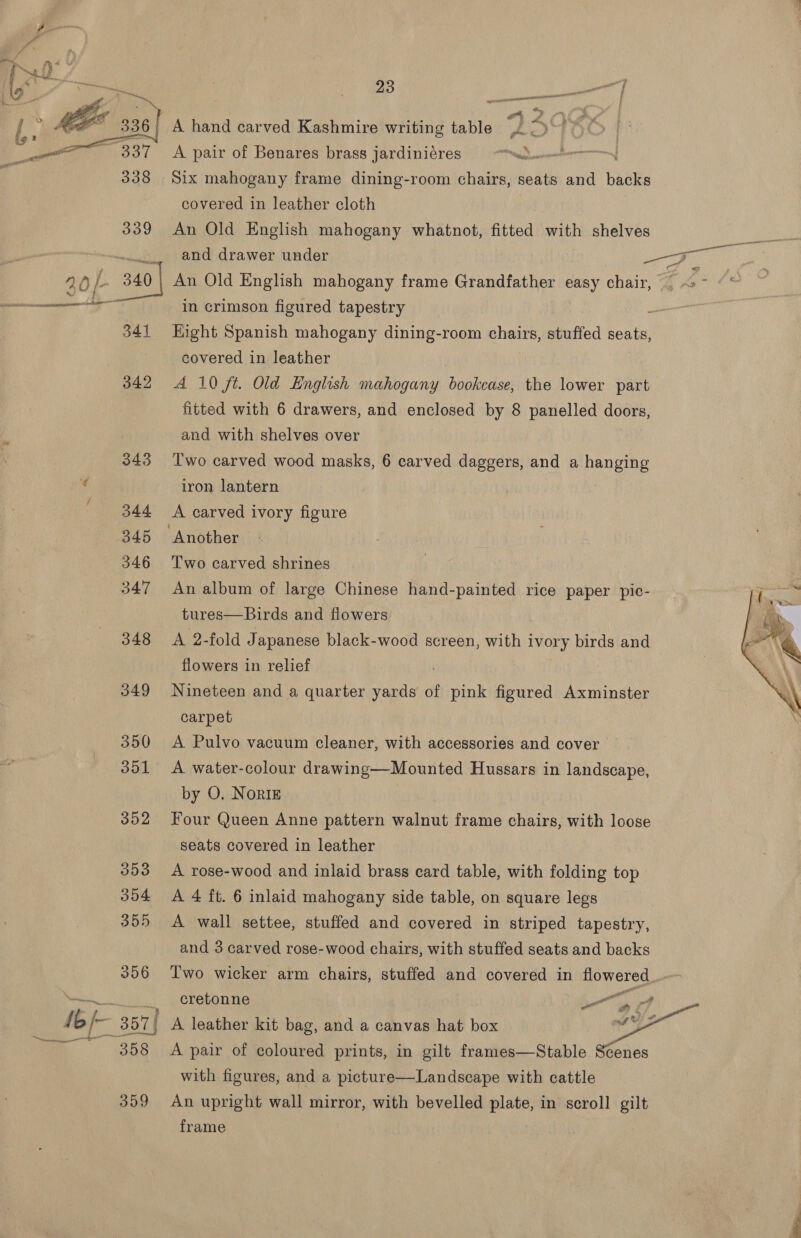 23
336 A hand carved Kashmire writing table
337 A pair of Benares brass jardiniéres
338 Six mahogany frame dining-room chairs, seats and backs
covered in leather cloth
339 An Old English mahogany whatnot, fitted with shelves
and drawer under
20/- 340 An Old English mahogany frame Grandfather easy chair,
in crimson figured tapestry
341 Eight Spanish mahogany dining-room chairs, stuffed seats,
covered in leather
342 A 10 ft. Old English mahogany bookcase, the lower part
fitted with 6 drawers, and enclosed by 8 panelled doors,
and with shelves over
343 Two carved wood masks, 6 carved daggers, and a hanging
iron lantern
344 A carved ivory figure
345 Another
346 Two carved shrines
347 An album of large Chinese hand-painted rice paper pic-
tures—Birds and flowers
348 A 2-fold Japanese black-wood screen, with ivory birds and
flowers in relief
349 Nineteen and a quarter yards of pink figured Axminster
carpet
350 A Pulvo vacuum cleaner, with accessories and cover
351 A water-colour drawing—Mounted Hussars in landscape,
by O. NORIE
352 Four Queen Anne pattern walnut frame chairs, with loose
seats covered in leather
353 A rose-wood and inlaid brass card table, with folding top
354 A 4 ft. 6 inlaid mahogany side table, on square legs
355 A wall settee, stuffed and covered in striped tapestry,
and 3 carved rose-wood chairs, with stuffed seats and backs
356 Two wicker arm chairs, stuffed and covered in flowered
cretonne
16/- 357 A leather kit bag, and a canvas hat box
358 A pair of coloured prints, in gilt frames—Stable Scenes
with figures, and a picture—Landscape with cattle
359 An upright wall mirror, with bevelled plate, in scroll gilt
frame